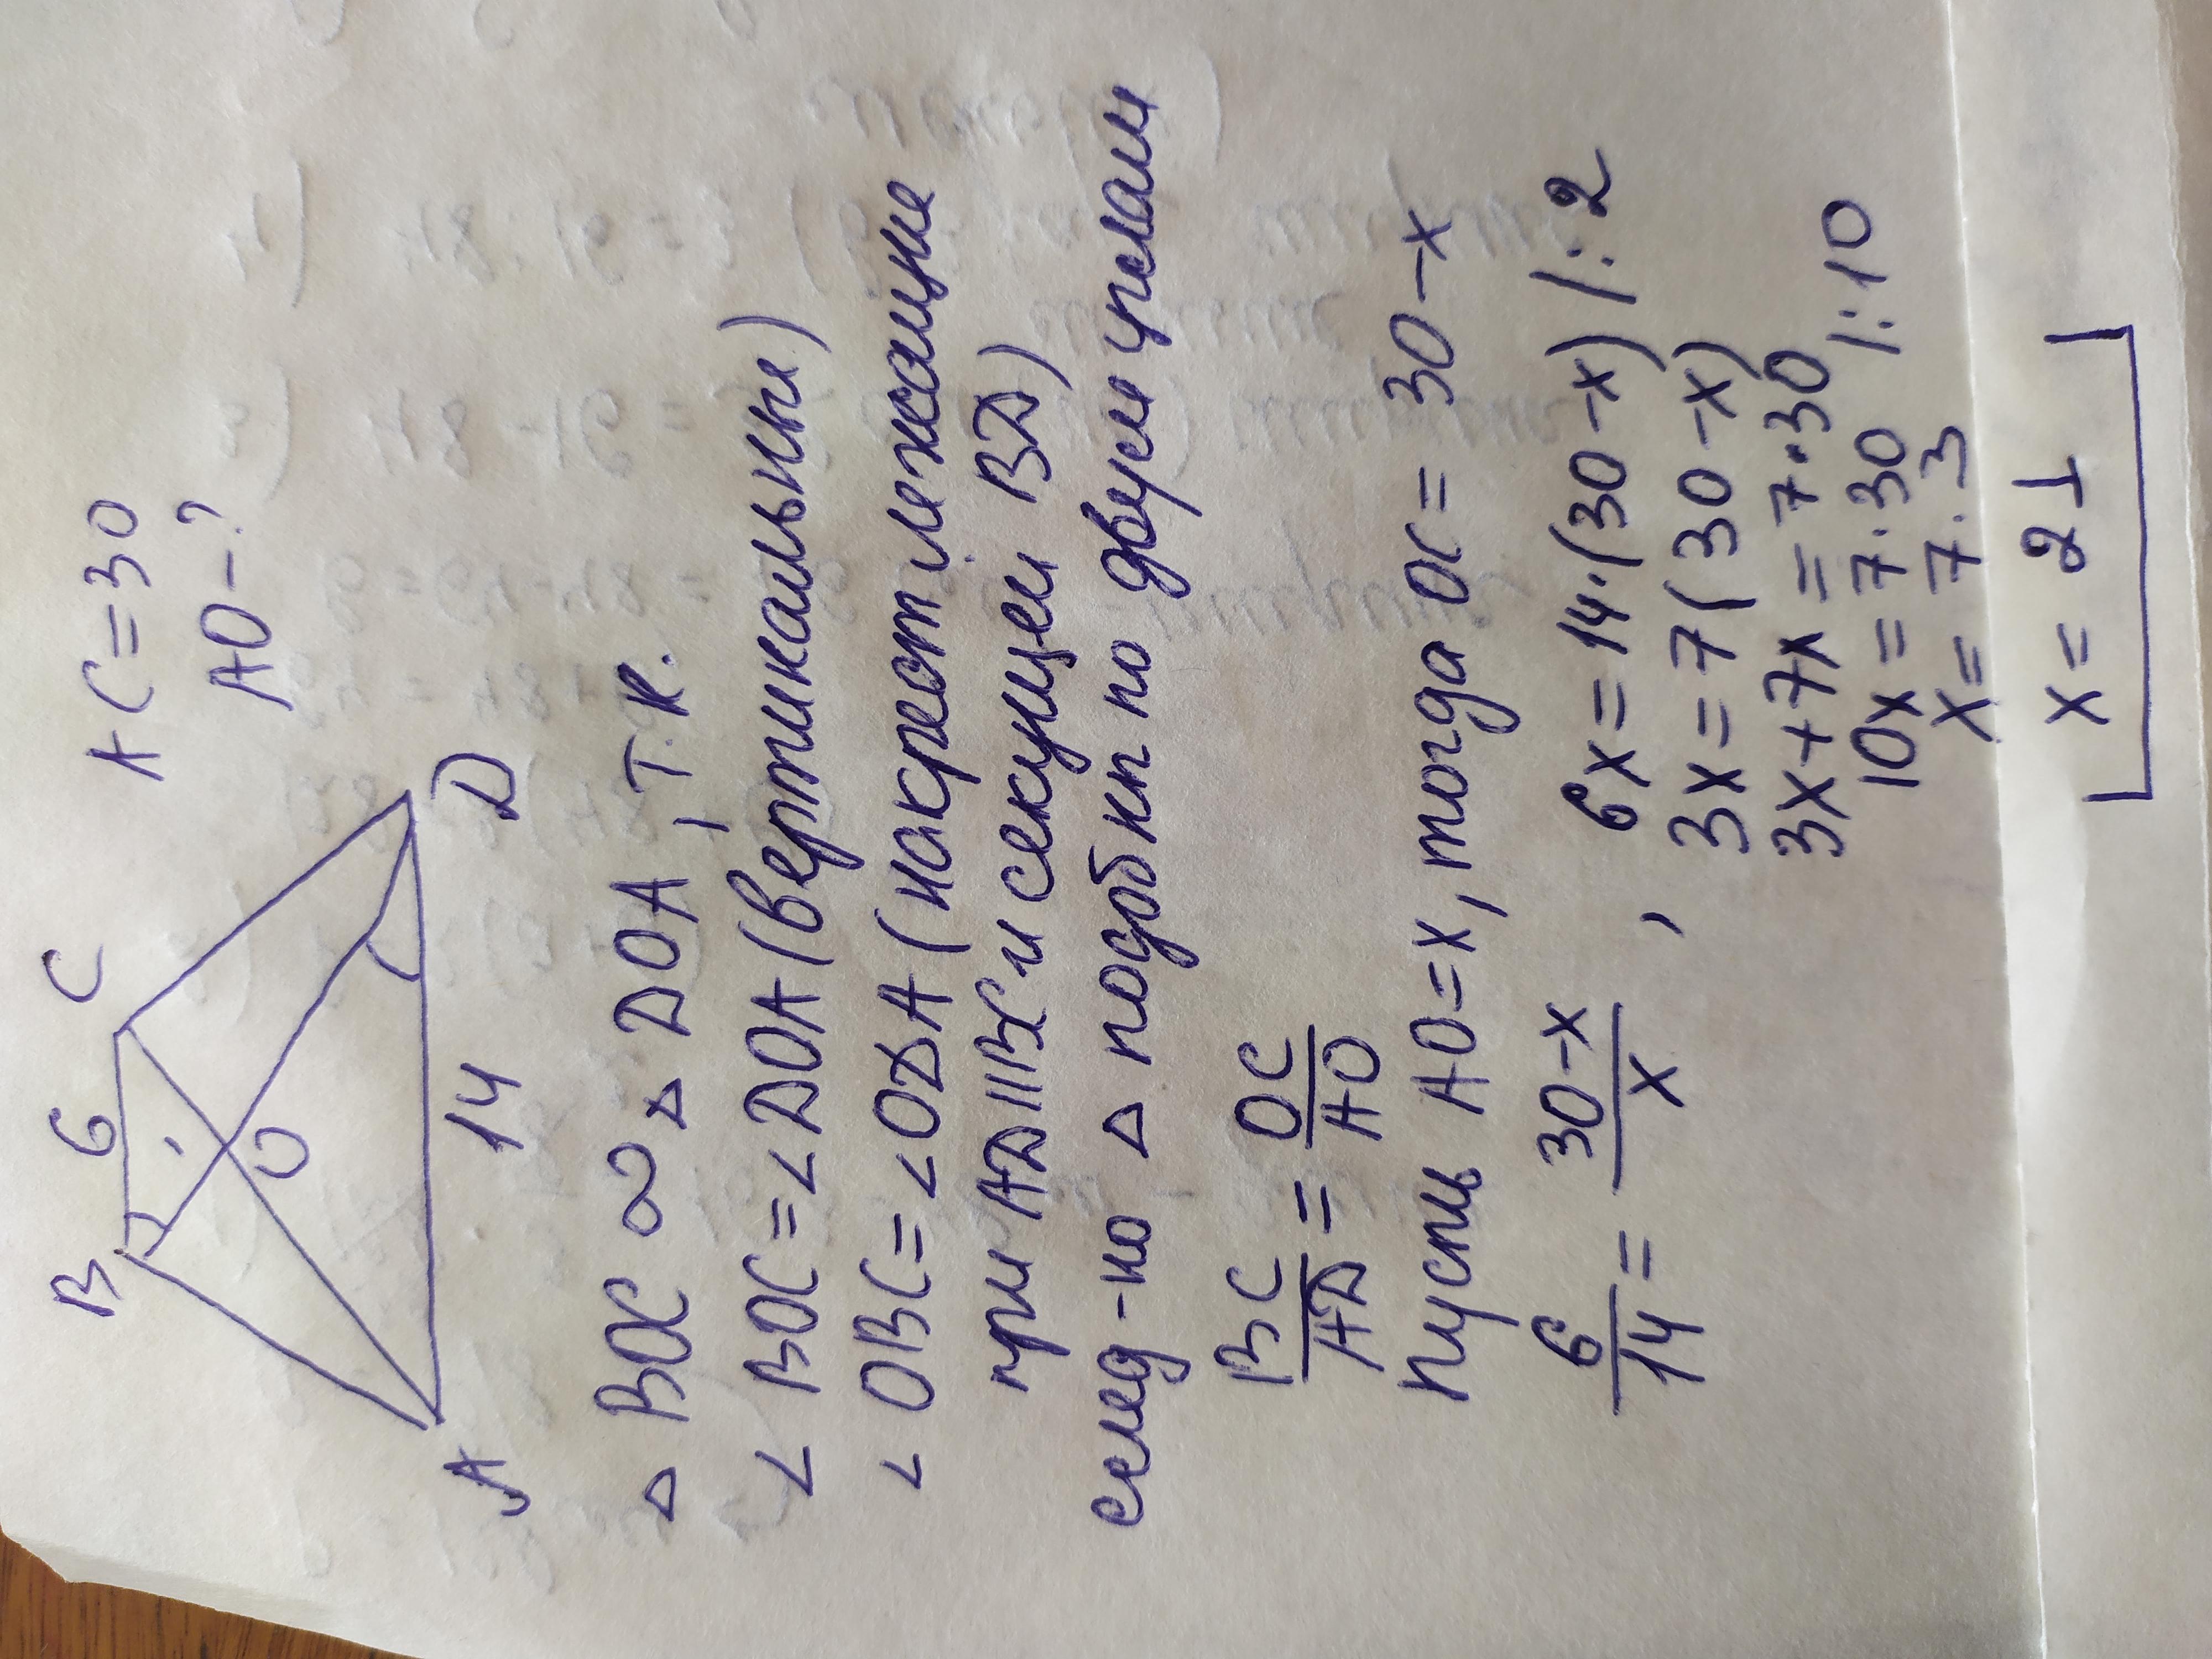 B 6 C
AC = 30
AO - ?
O
A 14 D
△ BOC ∞ △ DOA, т.к.
∠ BOC = ∠DOA (вертикальные)
∠ OBC = ∠ODA (накрест лежащие
при AD||BC и секущей BD)
след-но △ подобны по двум углам
BC/AD = OC/AO
Пусть AO = x, тогда OC = 30 - x
6/14 = 30-x/x , 6x = 14·(30-x) |:2
3x = 7(30-x)
3x+7x = 7·30
10x = 7·30 |:10
x = 7·3
x = 21